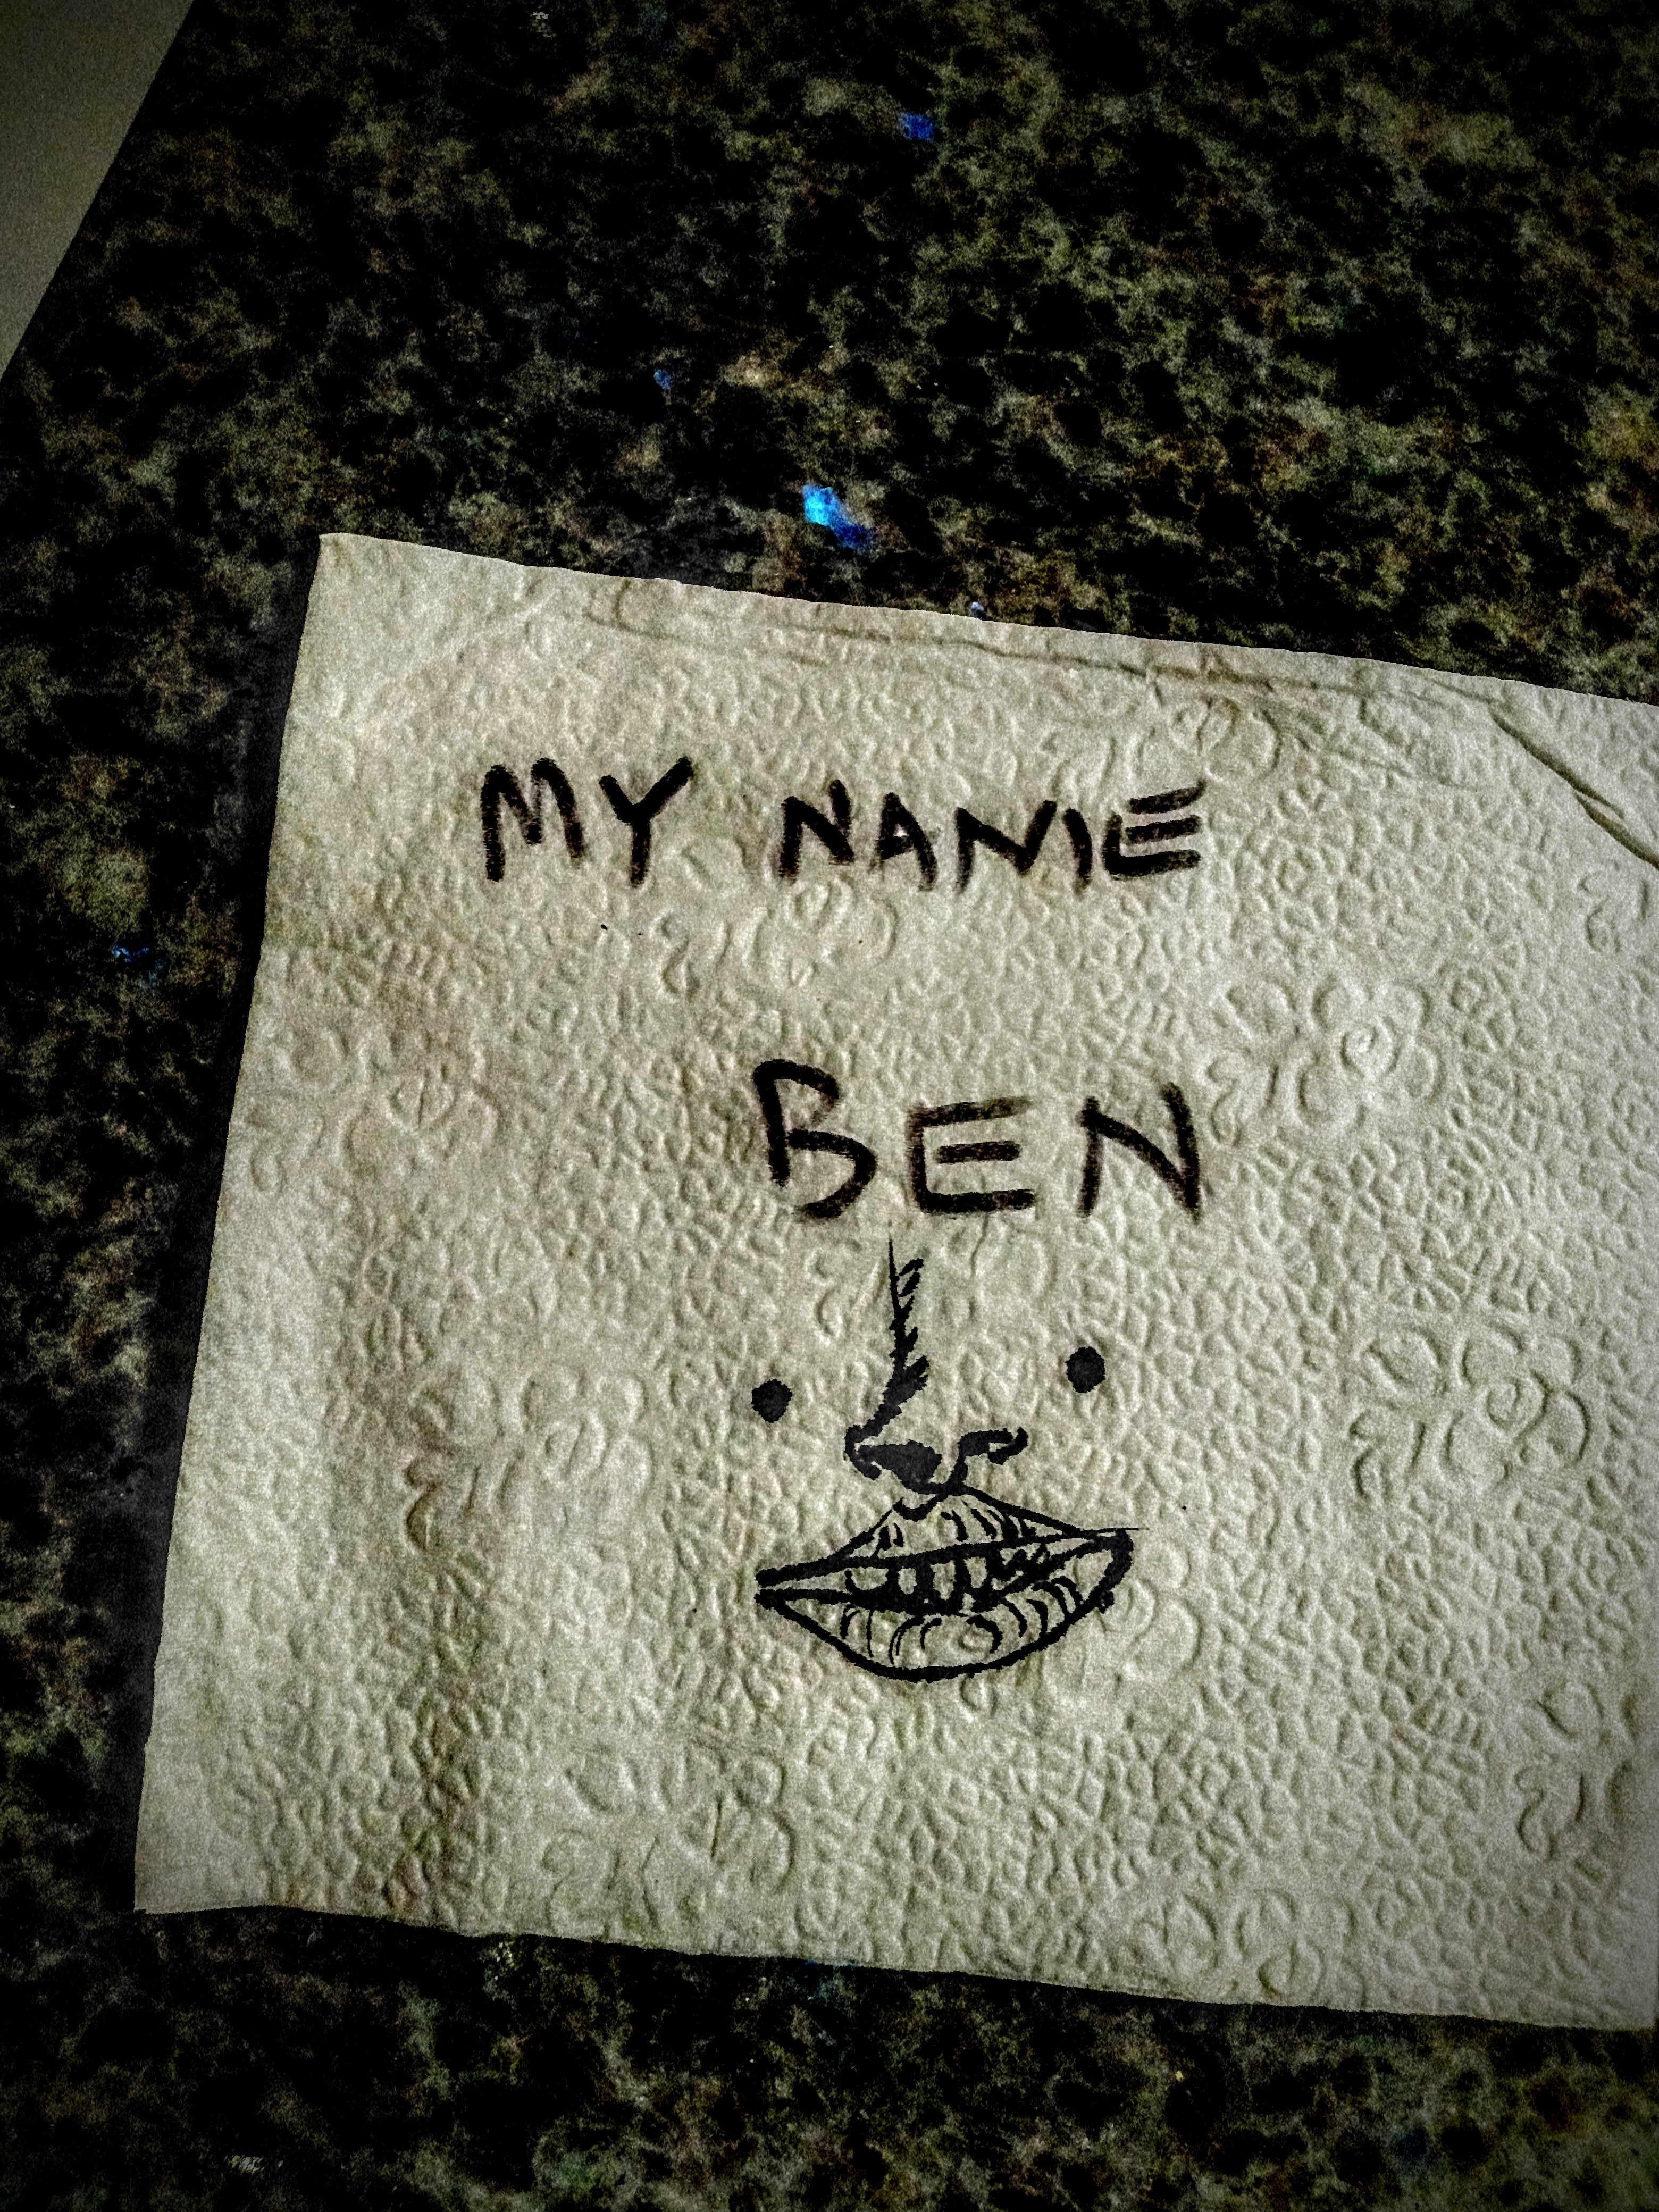 MY NAME
BEN